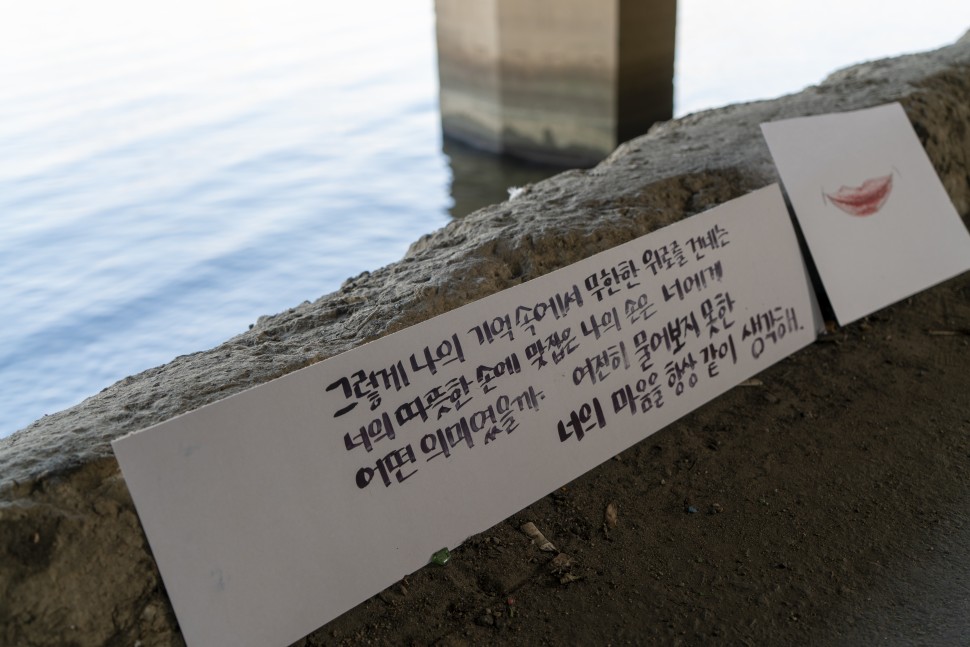 그렇게 나의 기억속에서 무한한 위로를 건네는
너의 따뜻한 손에 맞잡은 나의 손은 너에게
어떤 의미였을까. 여전히 물어보지 못한
너의 마음을 항상 같이 생각해.